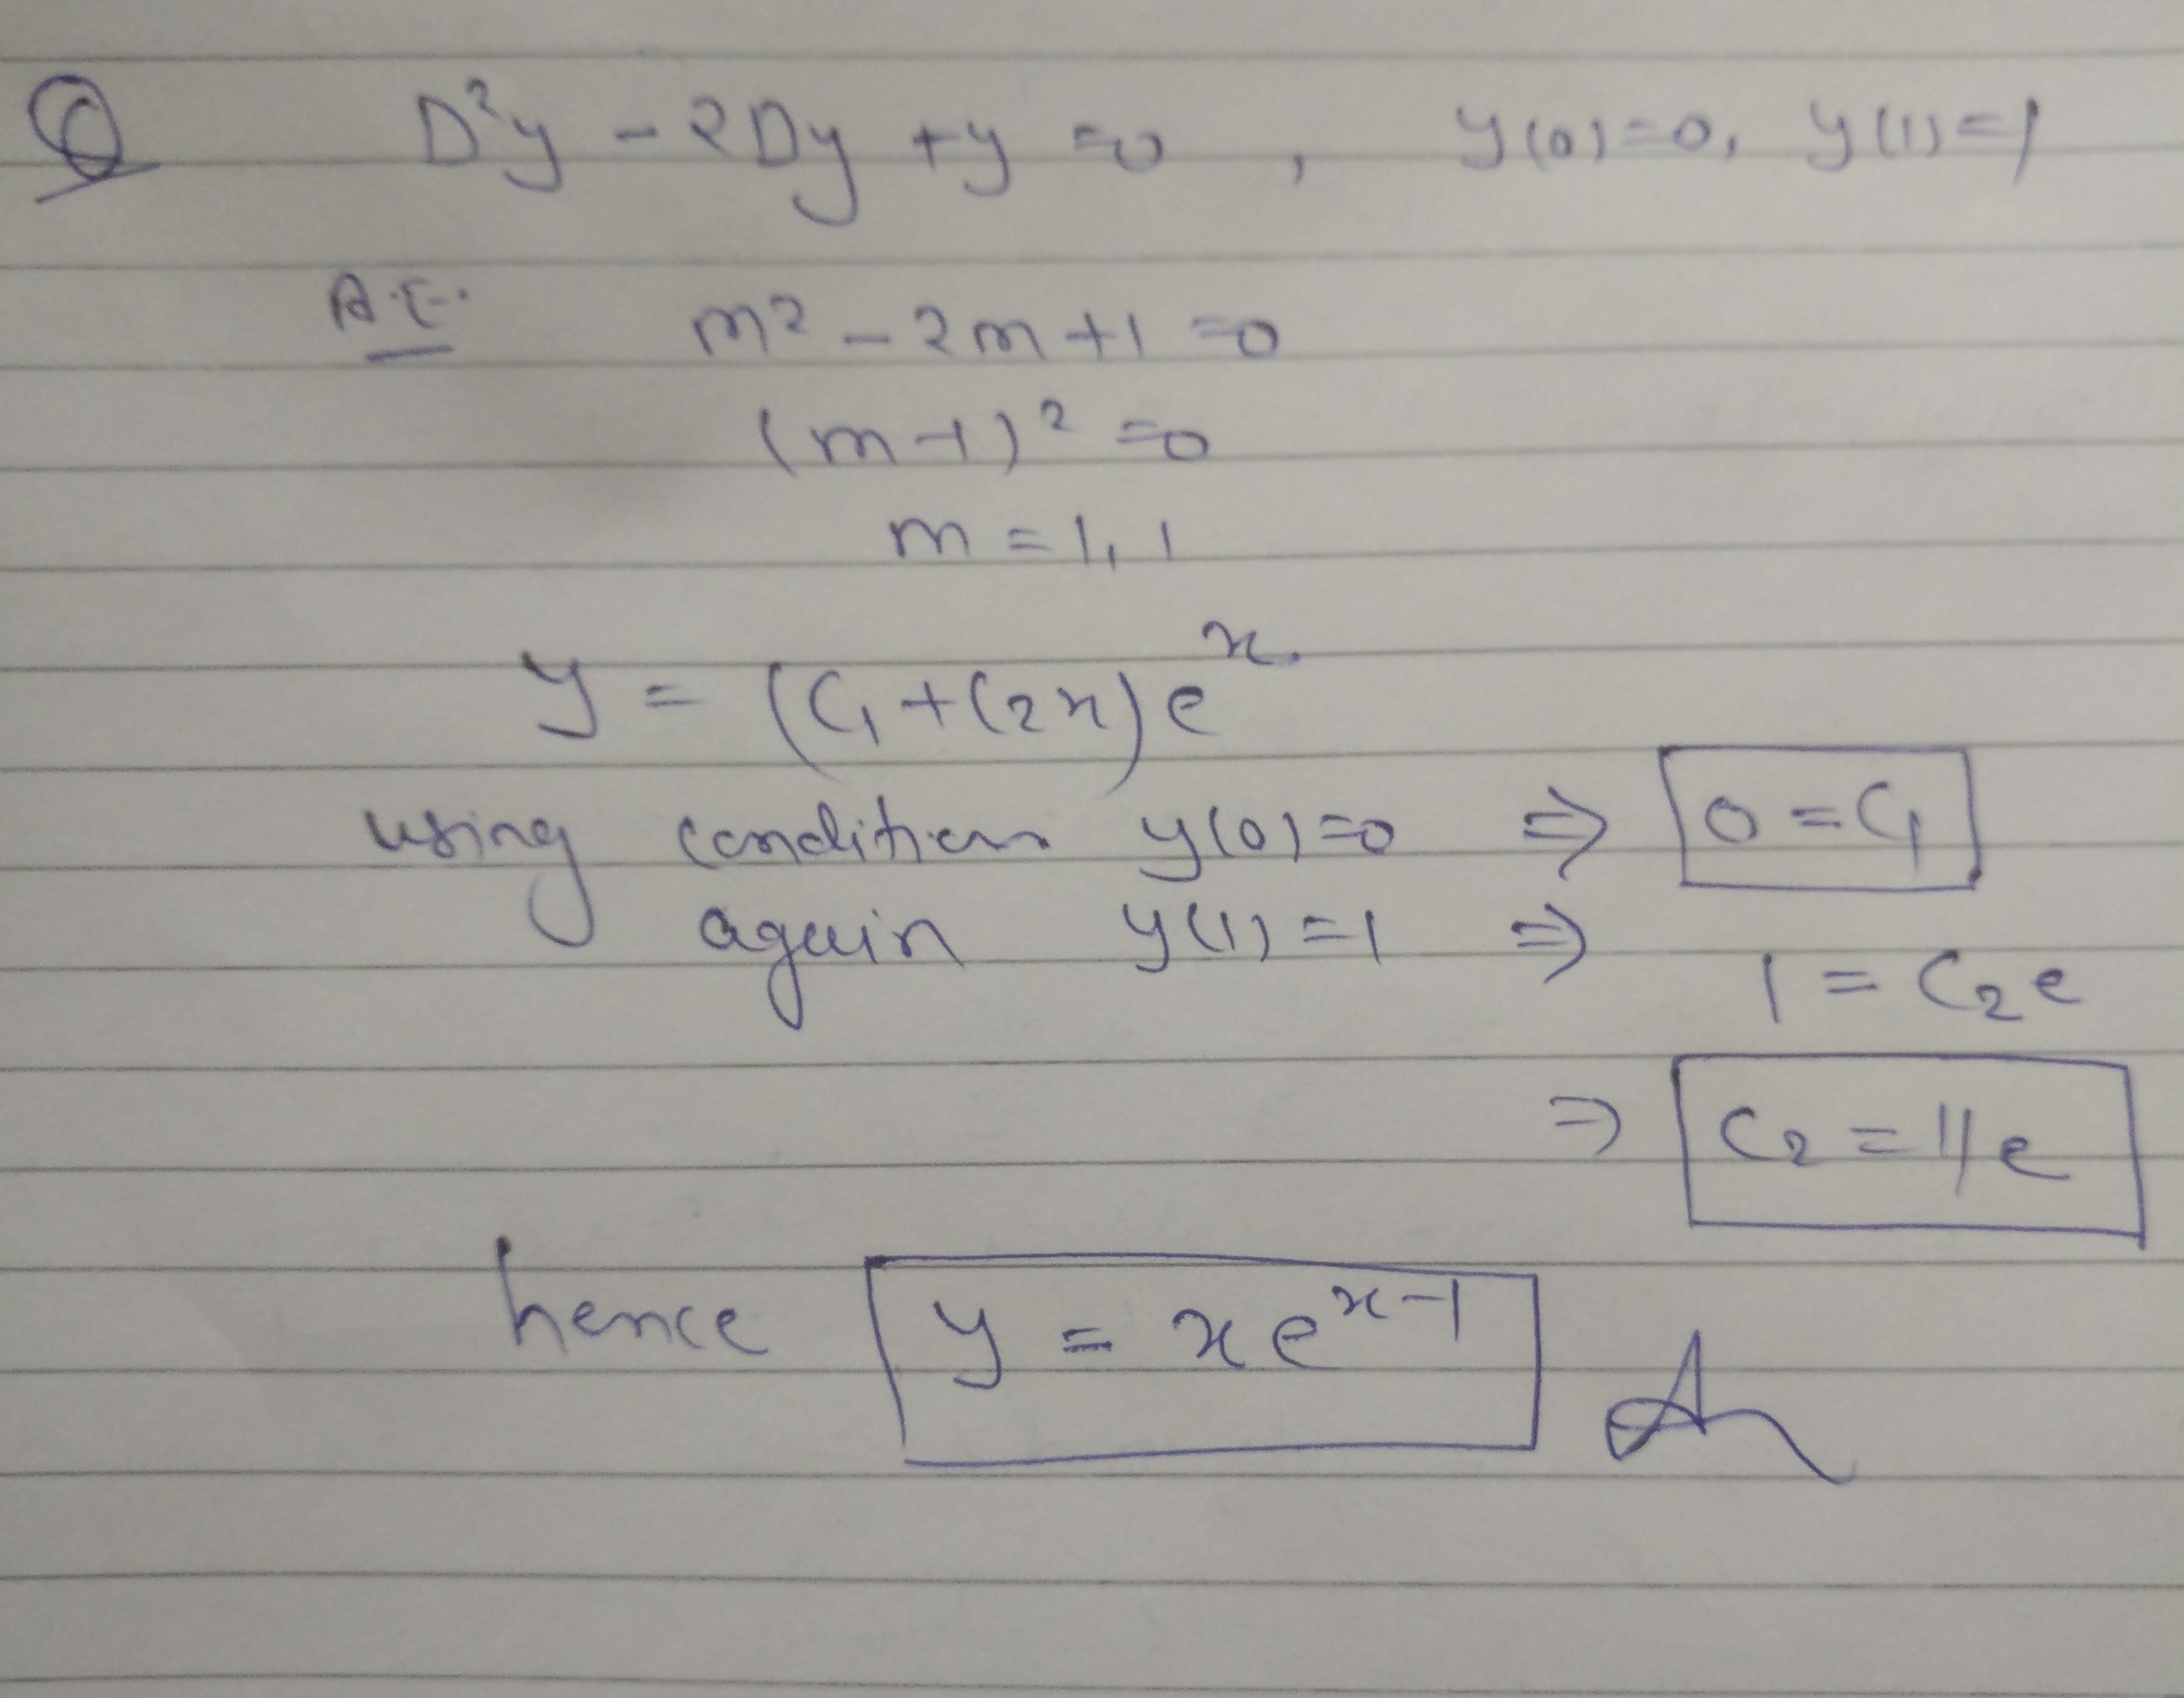 Q D²y - 2Dy + y = 0 , y(0)=0, y(1)=1
A.E. m² - 2m + 1 = 0
(m-1)² = 0
m = 1, 1
y = (C₁ + C₂x)eˣ
using condition y(0)=0 ⇒ 0 = C₁
again y(1) = 1 ⇒
1 = C₂e
⇒ C₂ = 1/e
hence y = xeˣ⁻¹